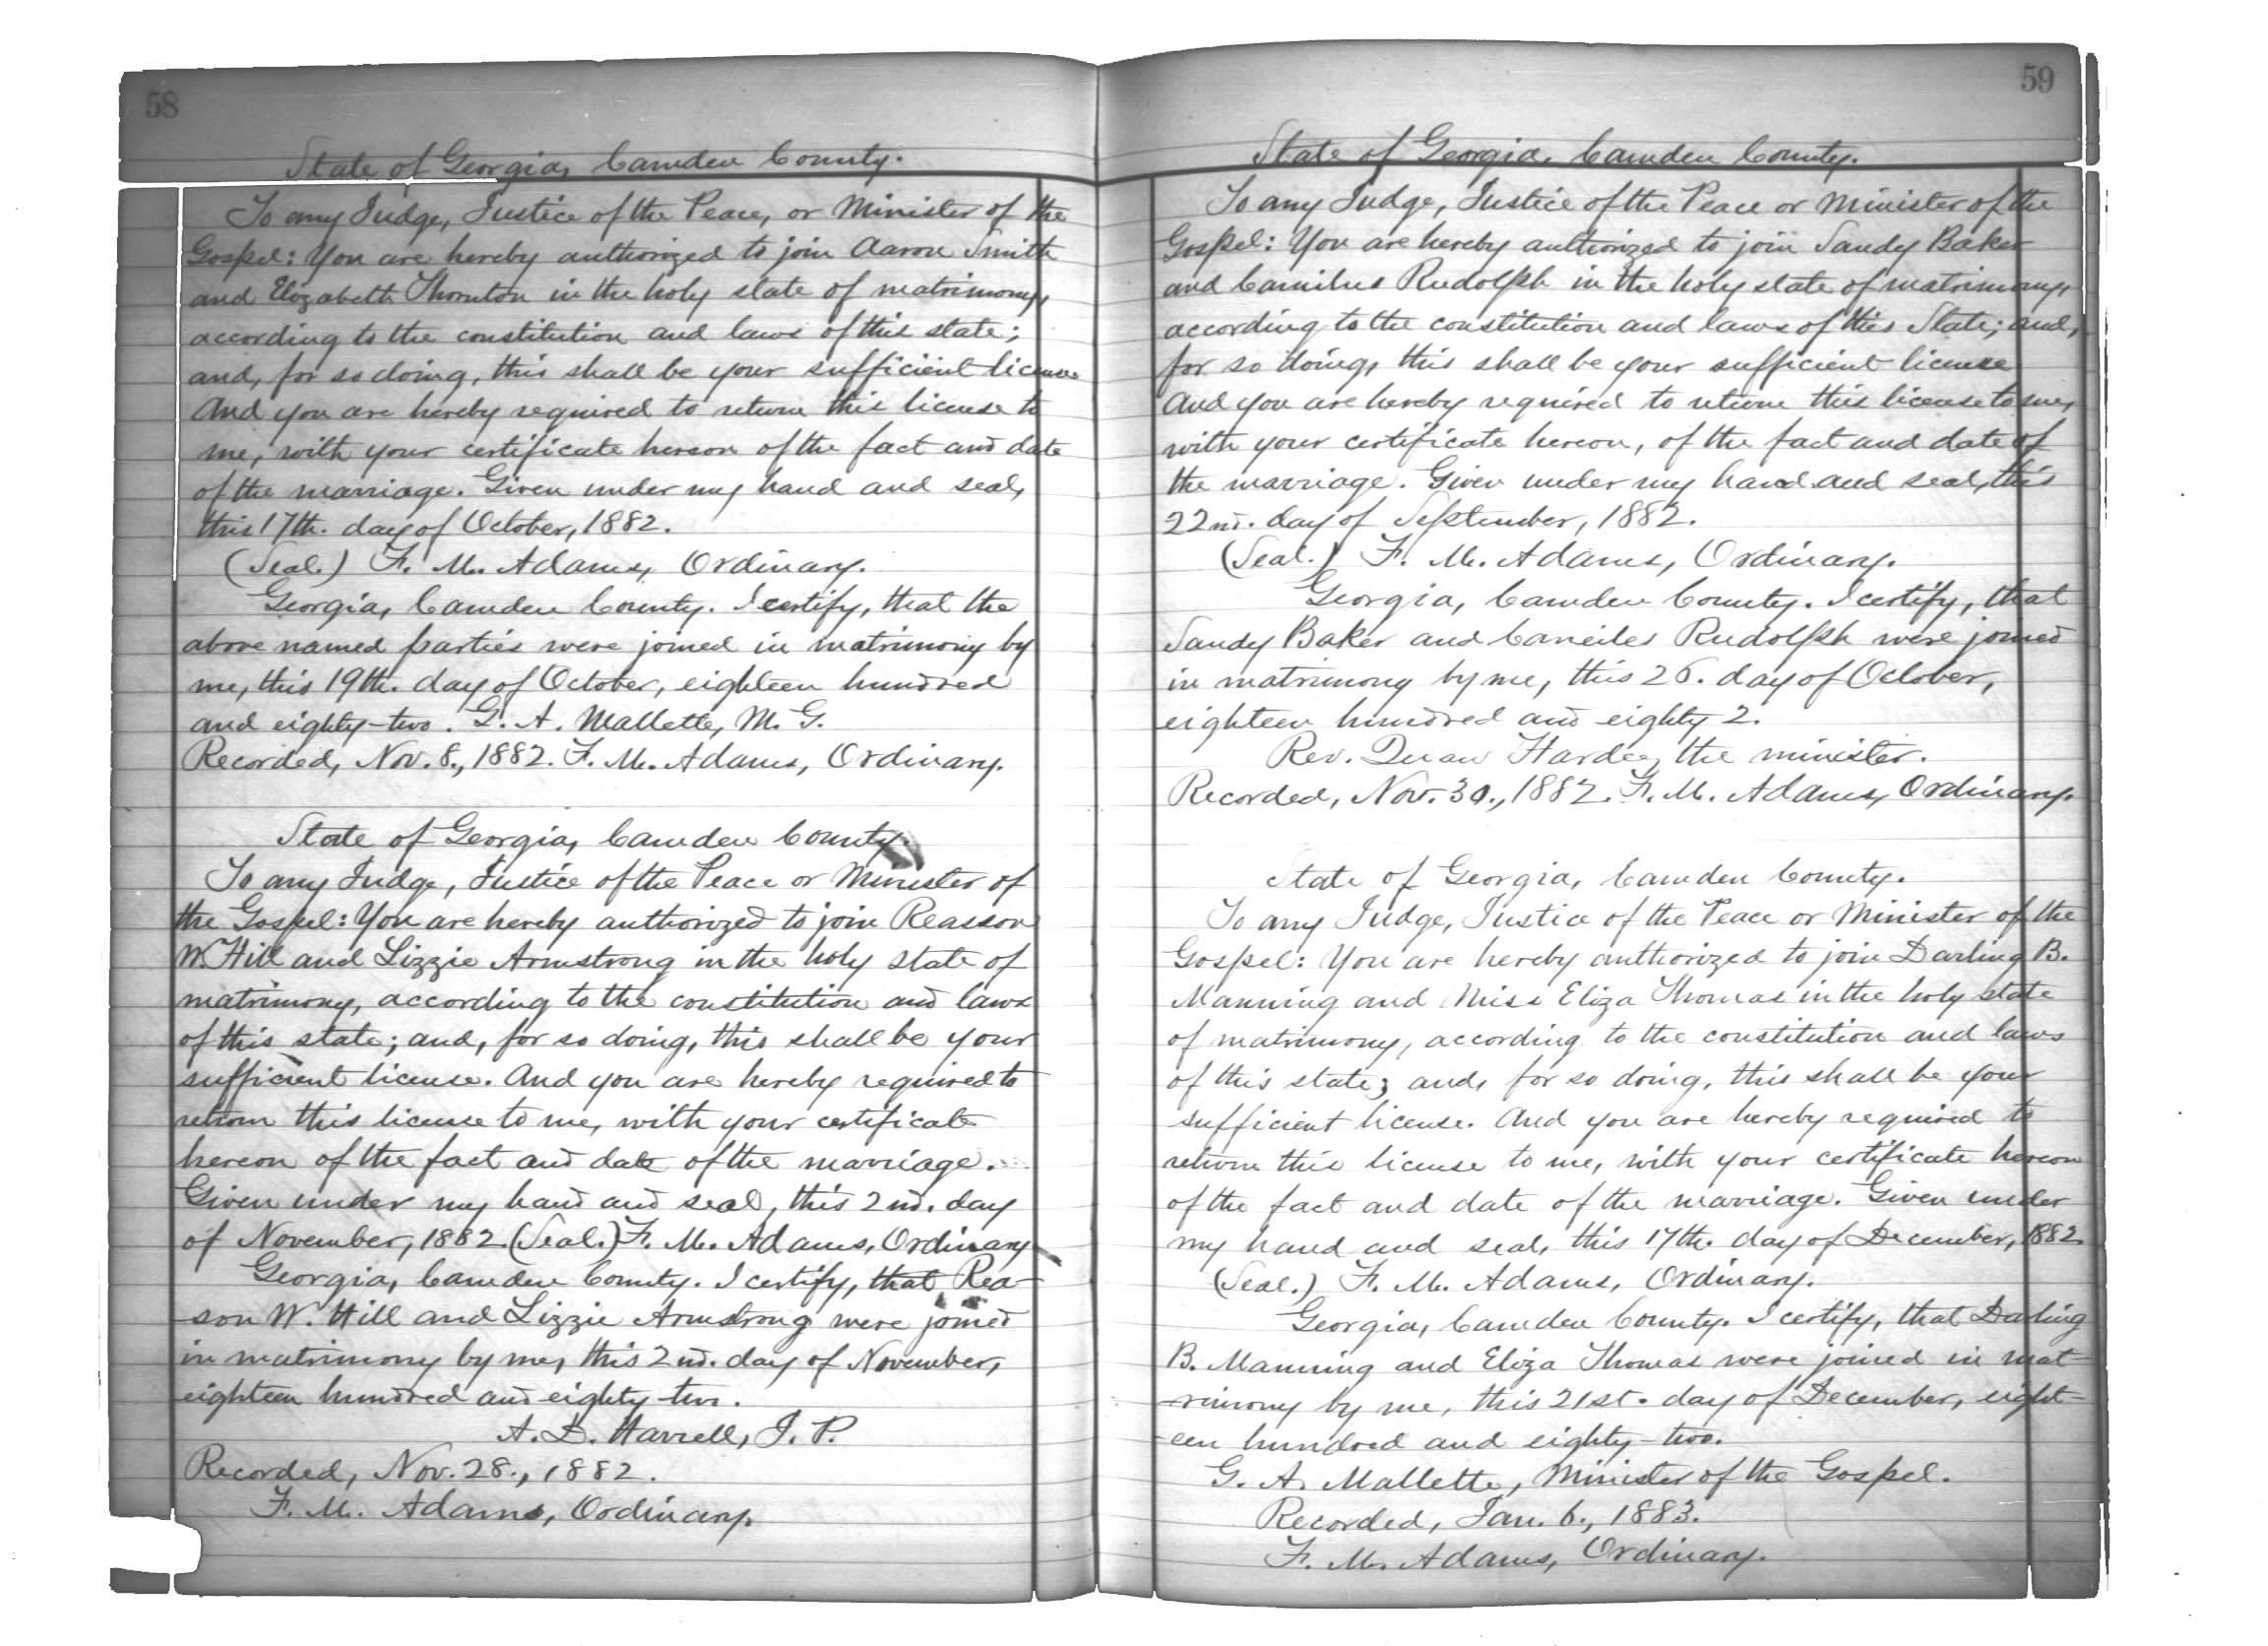 58
State of Georgia, Camden County.
To any Judge, Justice of the Peace, or Minister of the
Gospel: You are hereby authorized to join Aaron Smith
and Elizabeth Thornton in the holy state of matrimony,
according to the constitution and laws of this state;
and, for so doing, this shall be your sufficient license
And you are hereby required to return this license to
me, with your certificate hereon of the fact and date
of the marriage. Given under my hand and seal,
this 17th. day of October, 1882.
(Seal.) F. M. Adams, Ordinary.
Georgia, Camden County. I certify, that the
above named parties were joined in matrimony by
me, this 19th. day of October, eighteen hundred
and eighty-two. G. A. Mallette, M. G.
Recorded, Nov. 8., 1882. F. M. Adams, Ordinary.
State of Georgia, Camden County.
To any Judge, Justice of the Peace or Minister of
the Gospel: You are hereby authorized to join Reasson
W. Hill and Lizzie Armstrong in the holy state of
matrimony, according to the constitution and laws
of this state; and, for so doing, this shall be your
sufficient license. And you are hereby required to
return this license to me, with your certificate
hereon of the fact and date of the marriage.
Given under my hand and seal, this 2nd. day
of November, 1882. (Seal.) F. M. Adams, Ordinary
Georgia, Camden County. I certify, that Rea-
son W. Hill and Lizzie Armstrong were joined
in matrimony by me, this 2nd. day of November,
eighteen hundred and eighty-two.
A. D. Harrell, J. P.
Recorded, Nov. 28., 1882.
F. M. Adams, Ordinary.
59
State of Georgia, Camden County.
To any Judge, Justice of the Peace or Minister of the
Gospel: You are hereby authorized to join Sandy Baker
and Camilus Rudolph in the holy state of matrimony,
according to the constitution and laws of this State; and,
for so doing, this shall be your sufficient license
And you are hereby required to return this license to me,
with your certificate hereon, of the fact and date of
the marriage. Given under my hand and seal, this
22nd. day of September, 1882.
(Seal.) F. M. Adams, Ordinary.
Georgia, Camden County. I certify, that
Sandy Baker and Rudolph were joined
in matrimony by me, this 26. day of October,
eighteen hundred and eighty 2.
Rev. Hardee, the minister.
Recorded, Nov. 30., 1882. F. M. Adams, Ordinary.
State of Georgia, Camden County.
To any Judge, Justice of the Peace or Minister of the
Gospel: You are hereby authorized to join Darling B.
Manning and Miss Eliza Thomas in the holy state
of matrimony, according to the constitution and laws
of this state; and, for so doing, this shall be your
sufficient license. And you are hereby required to
return this license to me, with your certificate hereon
of the fact and date of the marriage. Given under
my hand and seal, this 17th. day of December, 1882
(Seal.) F. M. Adams, Ordinary.
Georgia, Camden County. I certify, that Darling
B. Manning and Eliza Thomas were joined in mat-
rimony by me, this 21st. day of December, eight-
een hundred and eighty-two.
G. A. Mallette, Minister of the Gospel.
Recorded, Jan. 6., 1883.
F. M. Adams, Ordinary.